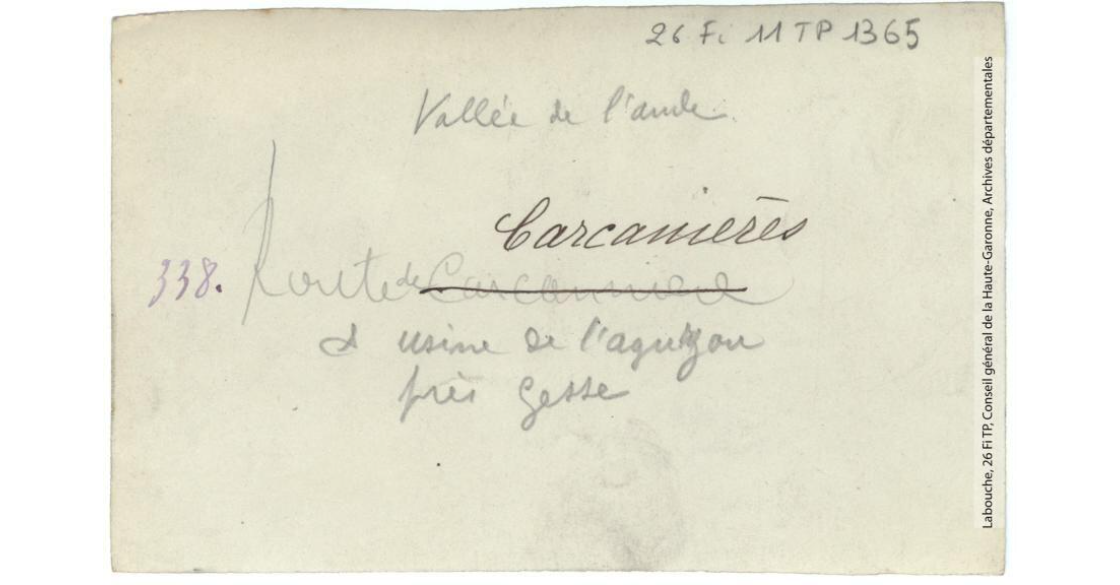 26 Fi 11 TP 1365
Vallée de l'aude
Carcanières
338. Route de Carcannière
& usine de l'aguzou
près Gesse
Labouche, 26 Fi TP, Conseil général de la Haute-Garonne, Archives départementales